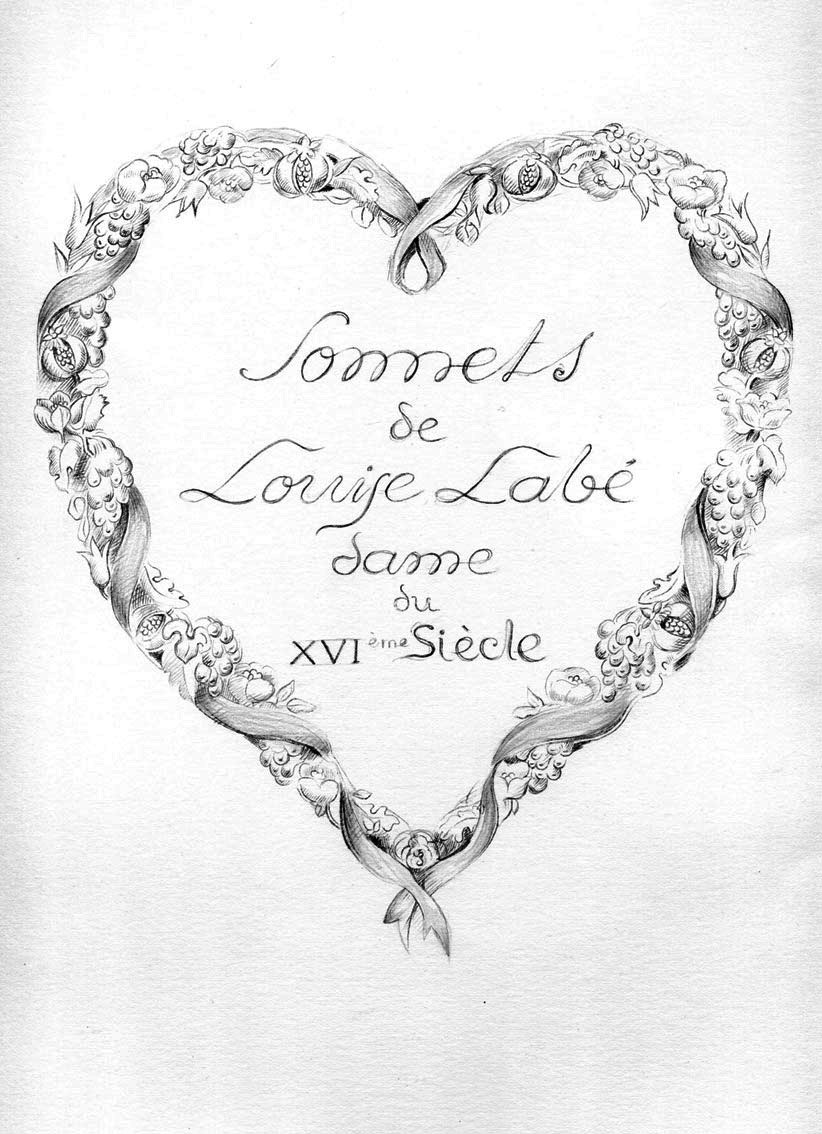 Sonnets
de
Louise Labé
dame
du
XVIème Siècle